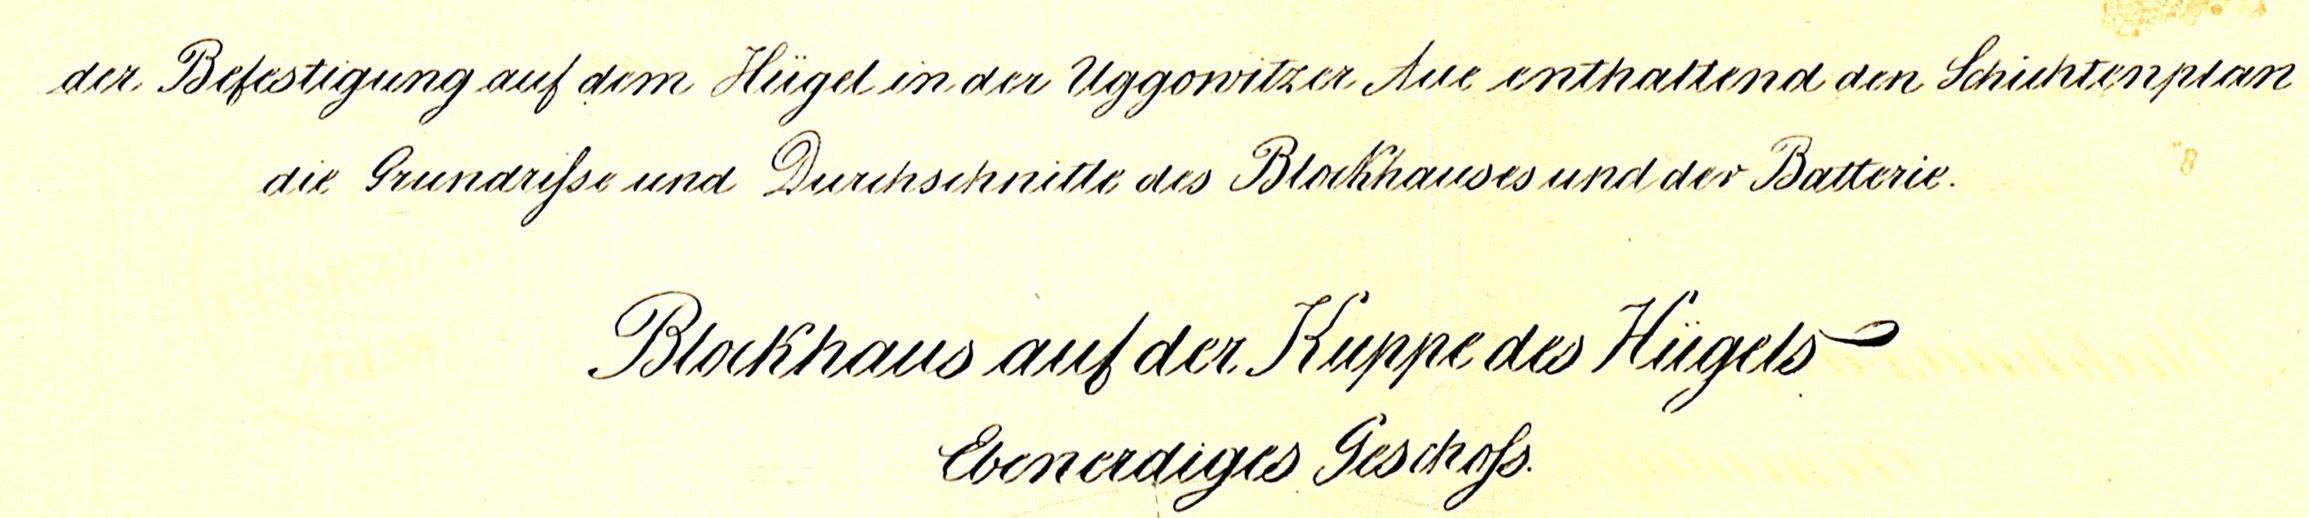 der Befestigung auf dem Hügel in der Uggowitzer Aue enthaltend den Schichtenplan
die Grundriſse und Durchschnitte des Blockhauses und der Batterie.
Blockhaus auf der Kuppe des Hügels
Ebenerdiges Geschoſs.